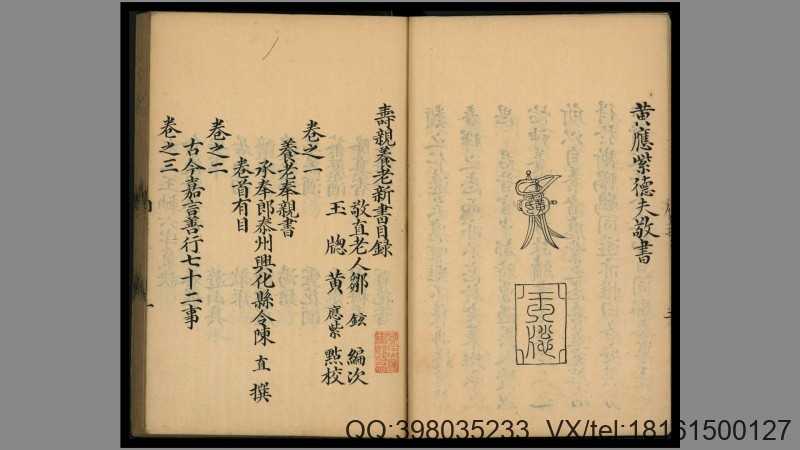 黄應紫德夫敬書
壽親養老新書目録
敬直老人鄒 鉉 編次
玉 牕 黄 應紫 點校
卷之一
養老奉親書
承奉郎泰州興化縣令陳 直 撰
卷首有目
卷之二
古今嘉言善行七十二事
卷之三
QQ:398035233 VX/tel:18161500127